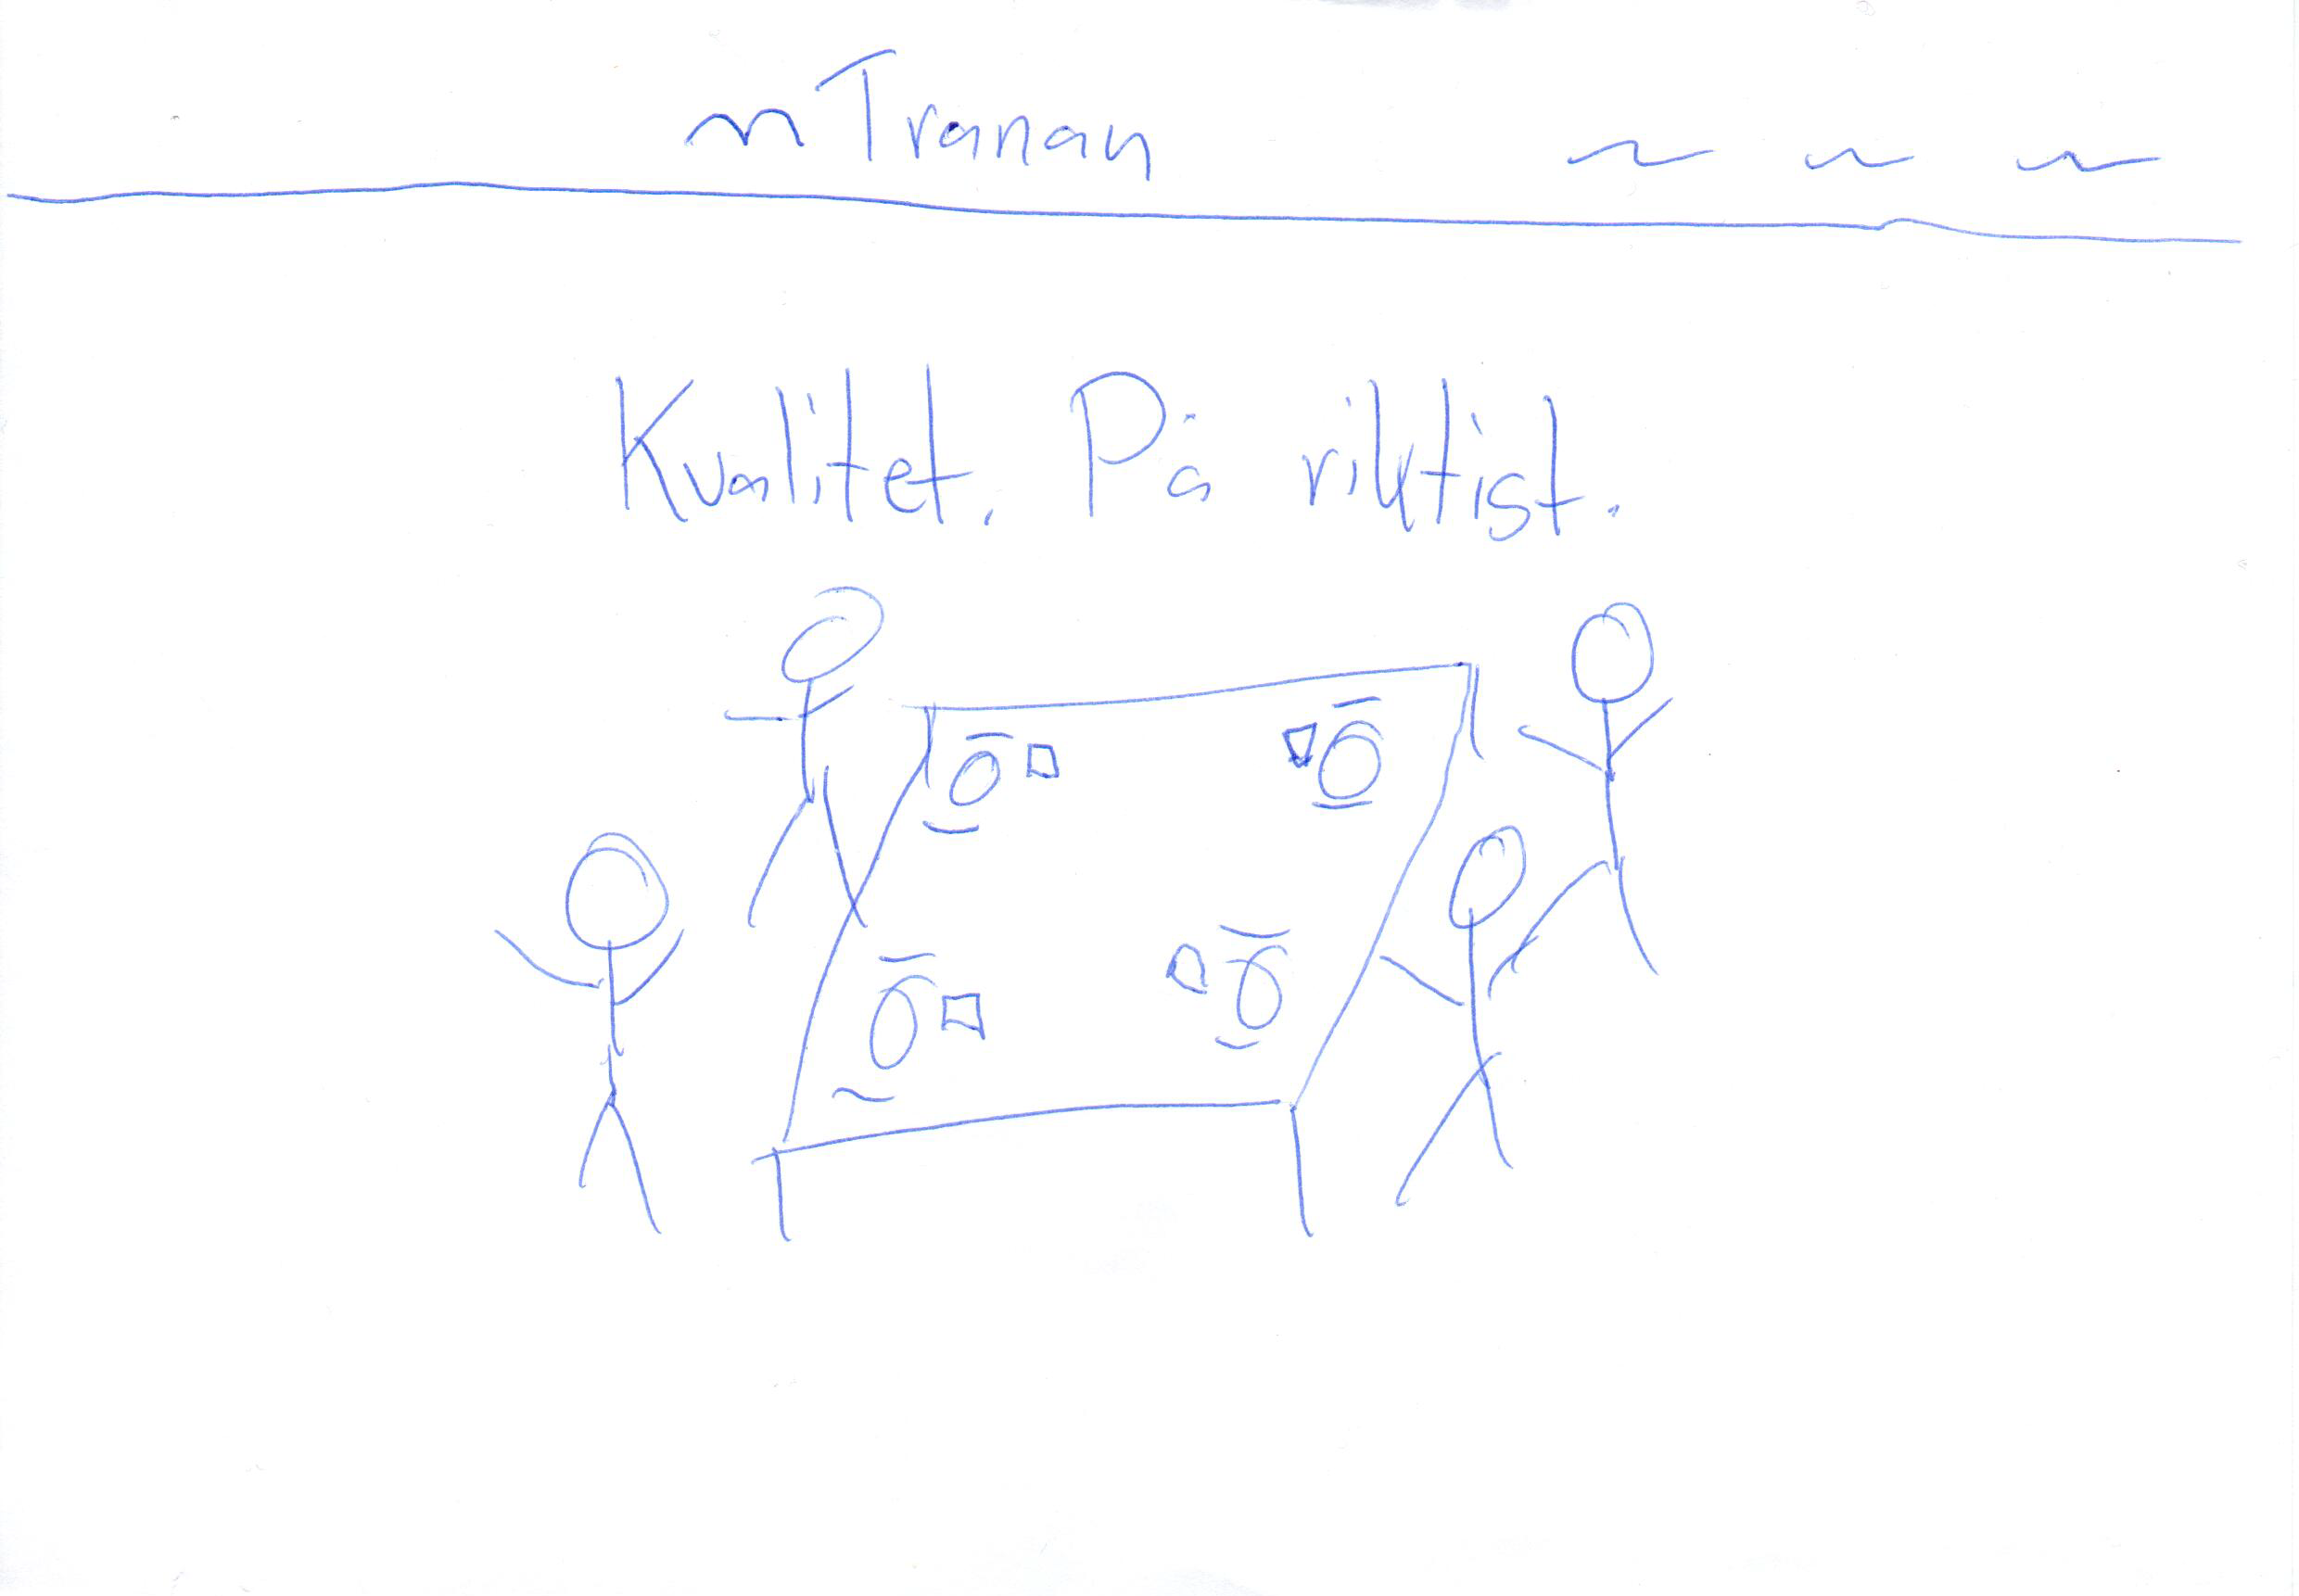 Tranan
Kvalitet. På riktist.